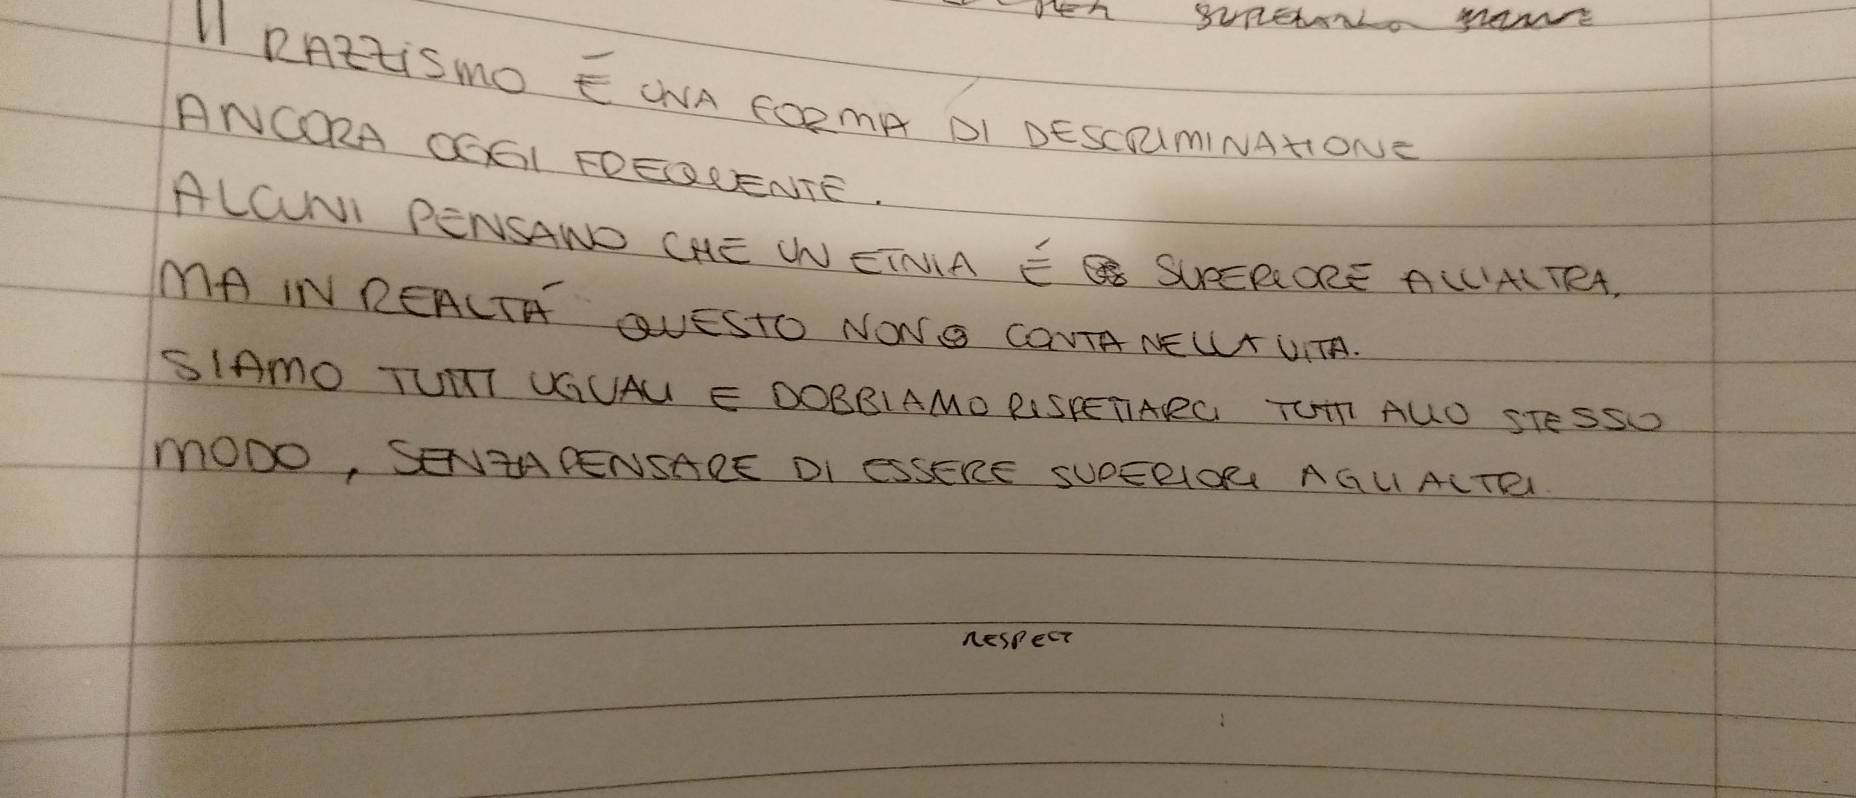 Il RAZZISMO É UNA FORMA DI DESCRIMINAZIONE
ANCORA OGGI FREQUENTE.
ALCUNI PENSANO CHE UN ETNIA É SUPERIORE ALL'ALTRA,
MA IN REALTÁ QUESTO NON CONTA NELLA VITA.
SIAMO TUTTI UGUALI E DOBBIAMO RISPETTARCI TUTTI ALLO STESSO
MODO, SENZA PENSARE DI ESSERE SUPERIORI AGLI ALTRI.
RESPECT